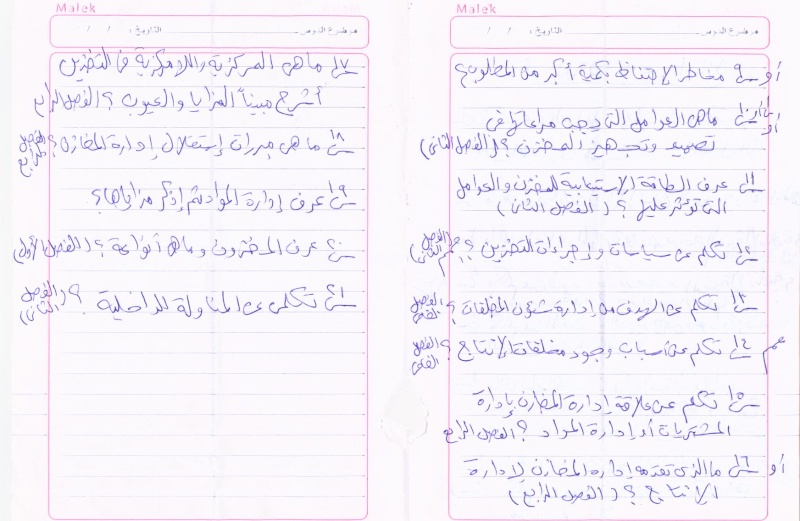 Malek
موضوع الدرس التاريخ: / /
أو س٩ مخاطر الاحتفاظ بكمية أكبر من المطلوب؟
أو س١٠ ماهى العوامل التى يجب مراعاتها فى
تصميم وتجهيز المخزن؟ (الفصل الثانى)
س١١ عرف الطاقة الإستيعابية للمخزن والعوامل
التى تؤثر عليها؟ (الفصل الثانى)
س١٢ تكلم عن سياسات وإجراءات التخزين؟ مهم (الفصل الثانى)
س١٣ تكلم عن الهدف من إدارة شئون المخلفات؟ الفصل
مهم س١٤ تكلم عن أسباب وجود مخلفات الإنتاج؟ الفصل
س١٥ تكلم عن علاقة إدارة المخازن بإدارة
المشتريات أو إدارة المواد؟ الفصل الرابع
أو س١٦ ما الذى تقدمه إدارة المخازن لإدارة
الإنتاج؟ (الفصل الرابع)
Malek
موضوع الدرس التاريخ: / /
س١٧ ماهى المركزية واللامركزية فى التخزين
أشرح مبيناً المزايا والعيوب؟ الفصل الرابع
س١٨ ماهى مبررات إستقلال إدارة المخازن؟ الفصل الرابع
س١٩ عرف إدارة المواد ثم إذكر مزاياها؟
س٢٠ عرف المخزون وماهى أنواعه؟ (الفصل الأول)
س٢١ تكلمى عن المناولة الداخلية؟ (الفصل الثانى)